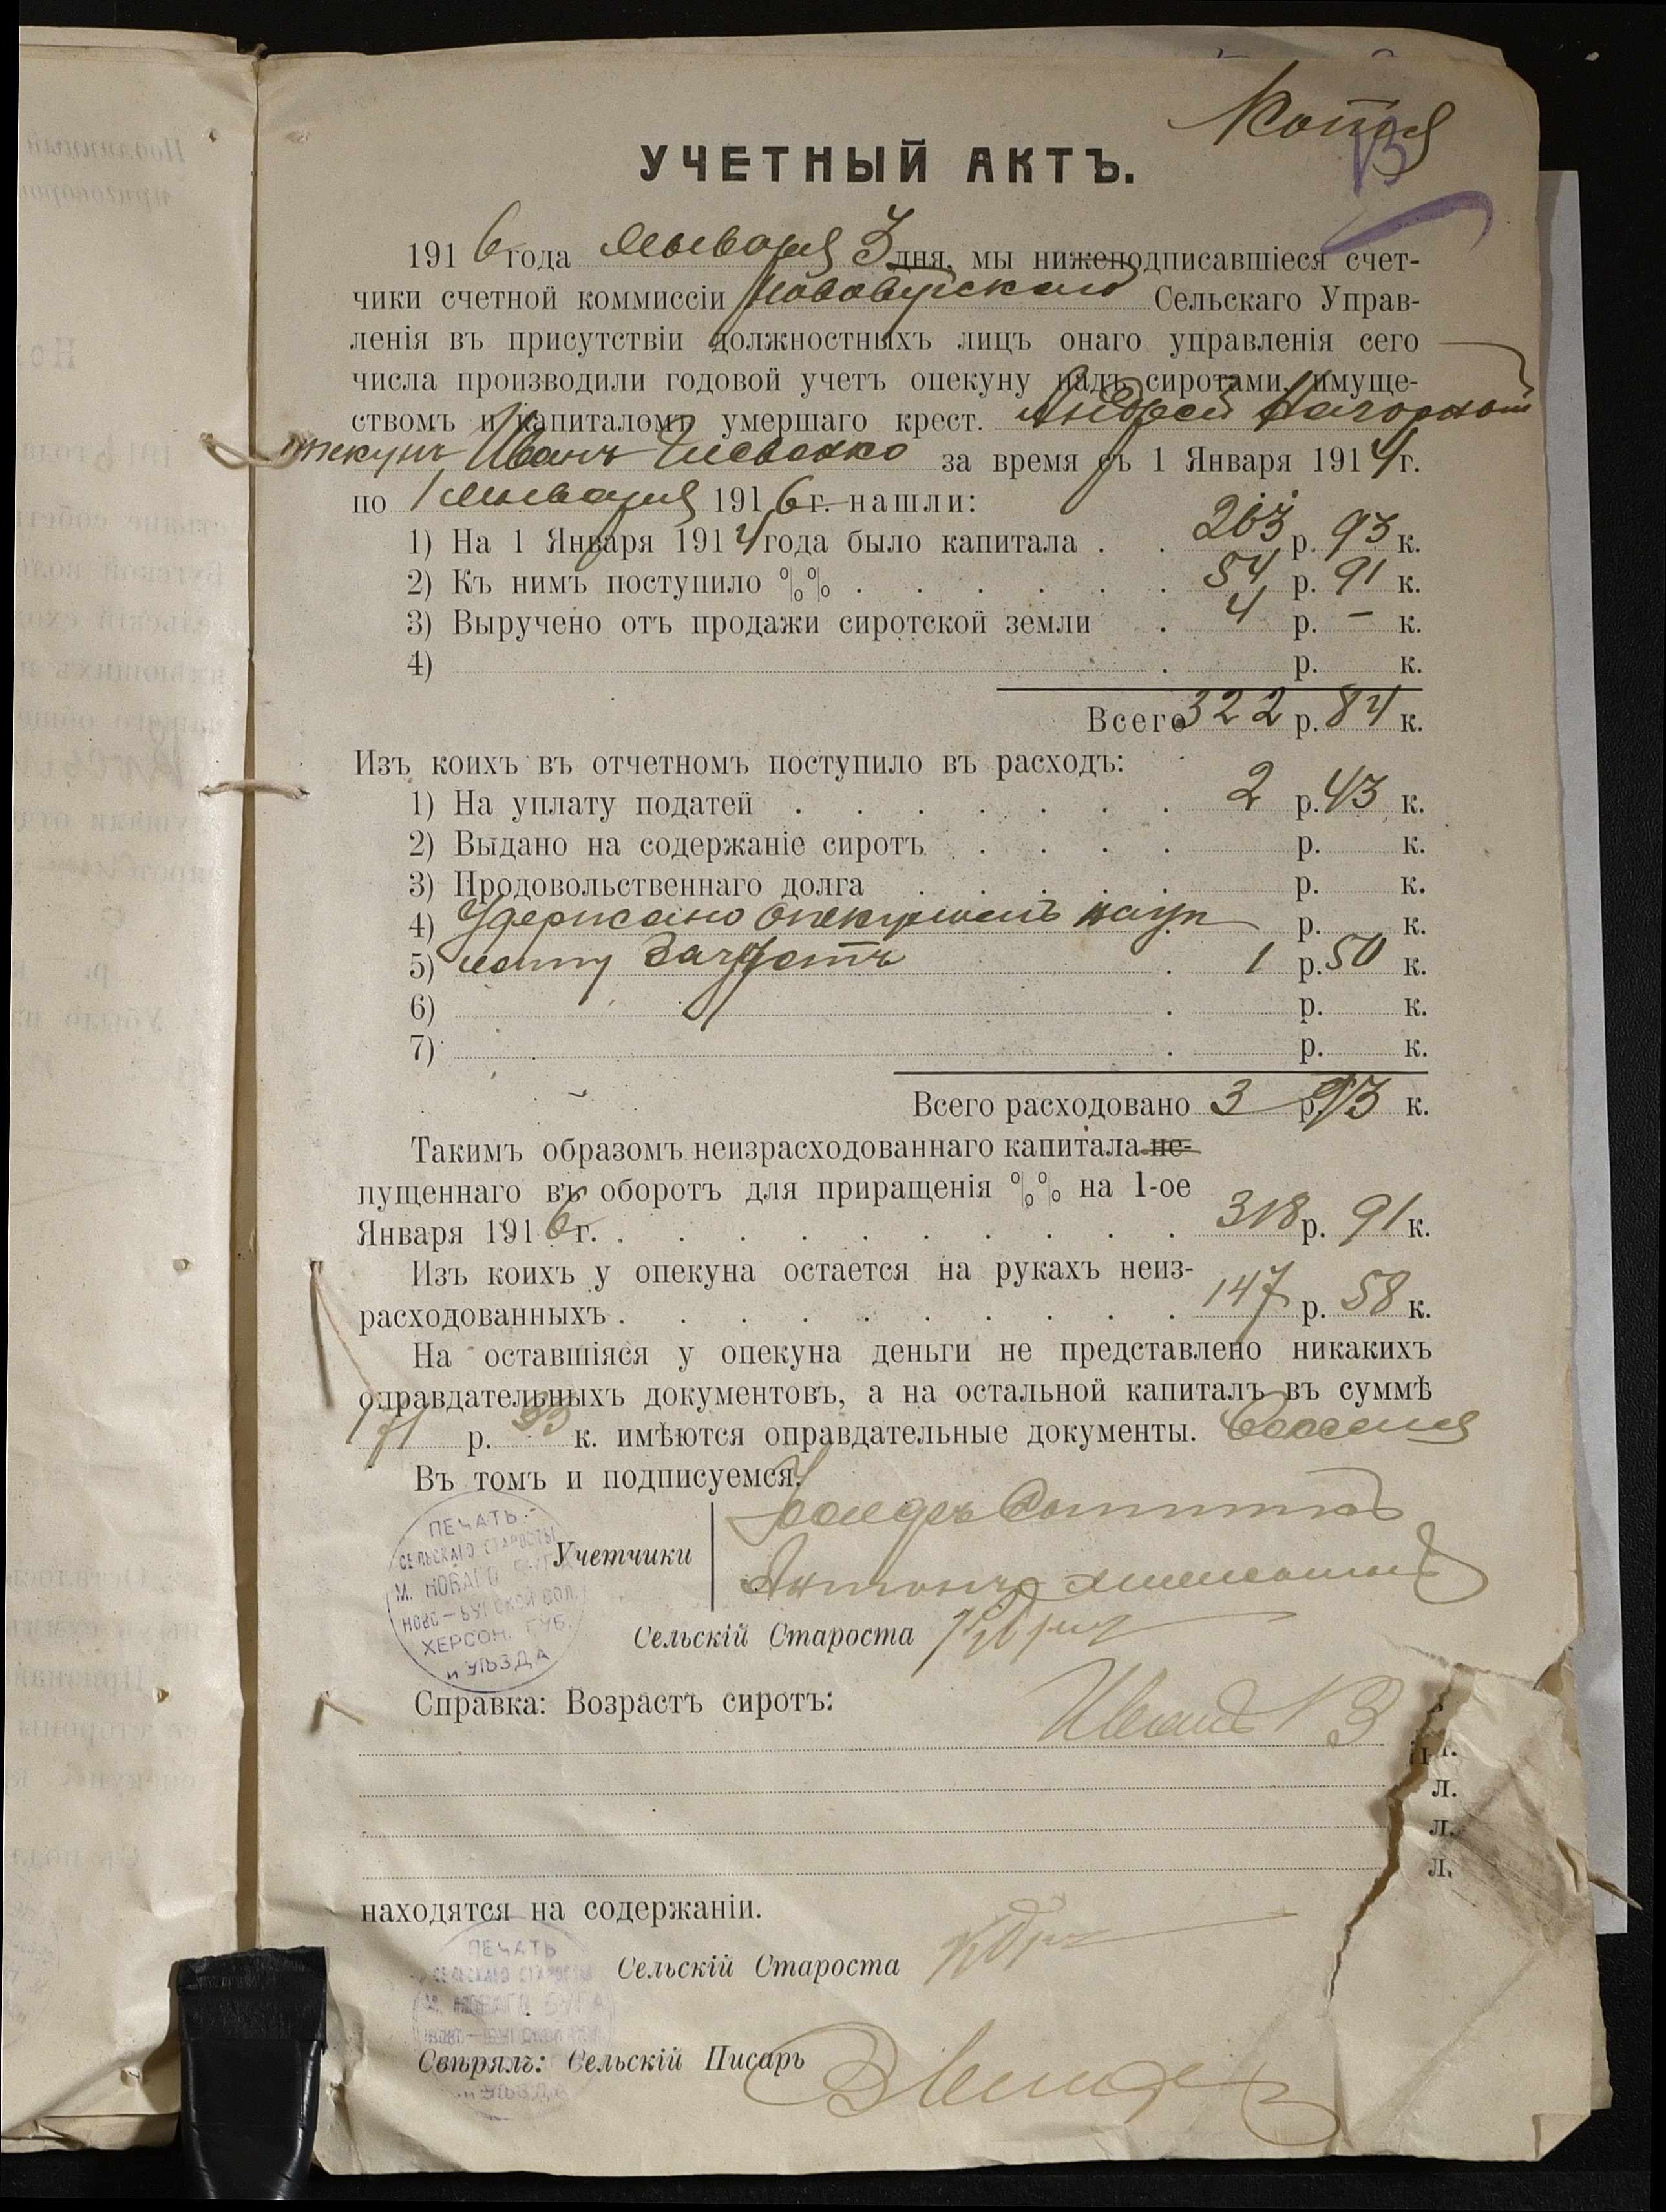 Копія
13
УЧЕТНЫЙ АКТЪ.
1916 года Января 3 дня, мы нижеподписавшіеся счет-
чики счетной коммиссіи Новобугскаго Сельскаго Управ-
ленія въ присутствіи должностныхъ лицъ онаго управленія сего
числа производили годовой учетъ опекуну надъ сиротами, имуще-
ствомъ и капиталомъ умершаго крест. Андрей Нагорный
опекунъ Иванъ за время съ 1 Января 1914 г.
по 1 Января 1916 г. нашли:
1) На 1 Января 1914 года было капитала . . 263 р. 93 к.
2) Къ нимъ поступило %% . . . . . . 54 р. 91 к.
3) Выручено отъ продажи сиротской земли . 4 р. – к.
4) . р. к.
Всего 322 р. 84 к.
Изъ коихъ въ отчетномъ поступило въ расходъ:
1) На уплату податей . . . . . . . 2 р. 43 к.
2) Выдано на содержаніе сиротъ . . . . р. к.
3) Продовольственнаго долга . . . . . р. к.
4) Удержано опекуномъ р. к.
5) . 1 р. 50 к.
6) . р. к.
7) . р. к.
Всего расходовано 3 р. 93 к.
Такимъ образомъ неизрасходованнаго капитала не-
пущеннаго въ оборотъ для приращенія %% на 1-ое
Января 1916 г. . . . . . . . . . . 318 р. 91 к.
Изъ коихъ у опекуна остается на рукахъ неиз-
расходованныхъ . . . . . . . . . . 147 р. 58 к.
На оставшіяся у опекуна деньги не представлено никакихъ
оправдательныхъ документовъ, а на остальной капиталъ въ суммѣ
171 р. 33 к. имѣются оправдательные документы.
Въ томъ и подписуемся.
Учетчики
Антонъ
Сельскій Староста
ПЕЧАТЬ
СЕЛЬСКАГО СТАРОСТЫ
М. НОВАГО БУГА
НОВО-БУГСКОЙ ВОЛ.
ХЕРСОН. ГУБ.
и УѢЗДА
Справка: Возрастъ сиротъ:
Иванъ 13 л.
л.
л.
л.
находятся на содержаніи.
Сельскій Староста
ПЕЧАТЬ
СЕЛЬСКАГО СТАРОСТЫ
М. НОВАГО БУГА
и УѢЗДА
Свѣрялъ: Сельскій Писарь